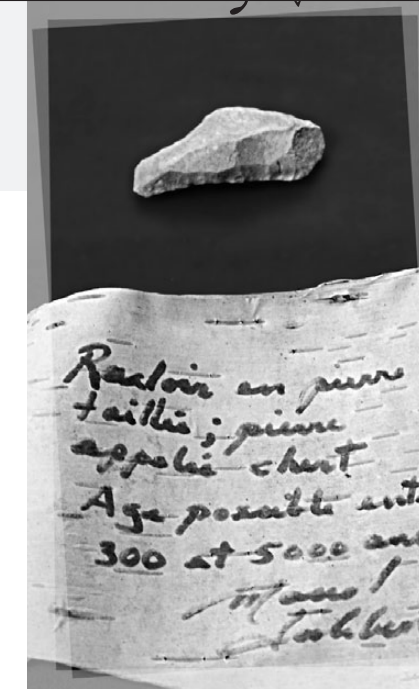 Racloir en pierre
taillée; pierre
appelée chert
Age possible ent
300 et 5000 an